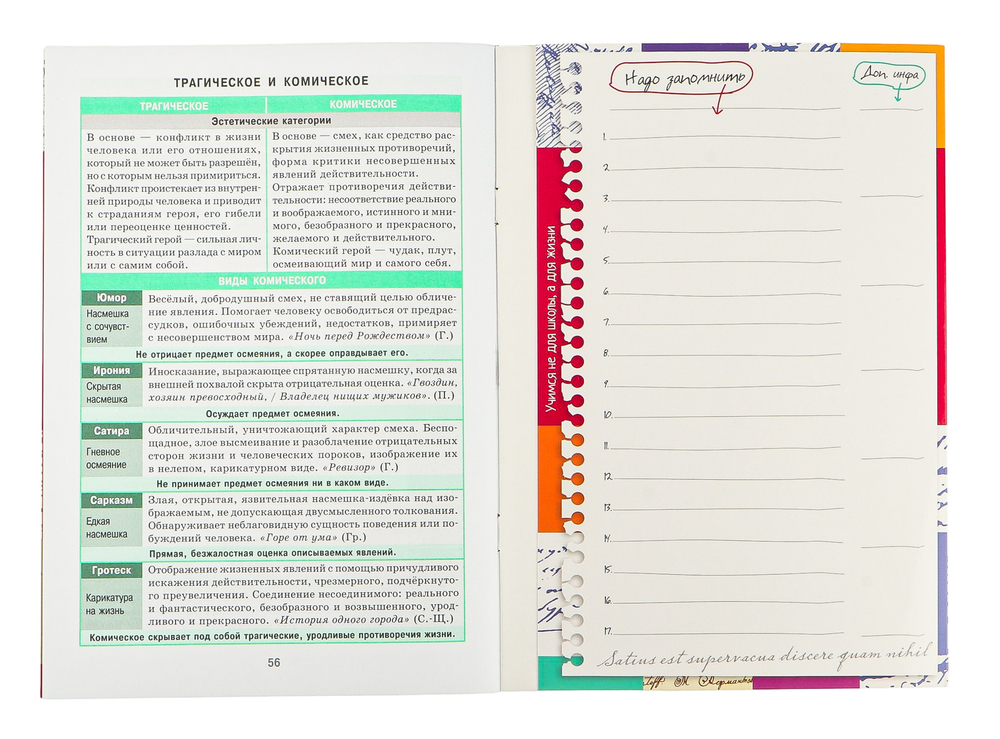 ТРАГИЧЕСКОЕ И КОМИЧЕСКОЕ
ТРАГИЧЕСКОЕ
КОМИЧЕСКОЕ
Эстетические категории
В основе — конфликт в жизни
человека или его отношениях,
который не может быть разрешён,
но с которым нельзя примириться.
Конфликт проистекает из внутрен-
ней природы человека и приводит
к страданиям героя, его гибели
или переоценке ценностей.
Трагический герой — сильная лич-
ность в ситуации разлада с миром
или с самим собой.
В основе — смех, как средство рас-
крытия жизненных противоречий,
форма критики несовершенных
явлений действительности.
Отражает противоречия действи-
тельности: несоответствие реального
и воображаемого, истинного и мни-
мого, безобразного и прекрасного,
желаемого и действительного.
Комический герой — чудак, плут,
осмеивающий мир и самого себя.
ВИДЫ КОМИЧЕСКОГО
Юмор
Насмешка
с сочувст-
вием
Весёлый, добродушный смех, не ставящий целью обличе-
ние явления. Помогает человеку освободиться от предрас-
судков, ошибочных убеждений, недостатков, примиряет
с несовершенством мира. «Ночь перед Рождеством» (Г.)
Не отрицает предмет осмеяния, а скорее оправдывает его.
Ирония
Скрытая
насмешка
Иносказание, выражающее спрятанную насмешку, когда за
внешней похвалой скрыта отрицательная оценка. «Гвоздин,
хозяин превосходный, / Владелец нищих мужиков». (П.)
Осуждает предмет осмеяния.
Сатира
Гневное
осмеяние
Обличительный, уничтожающий характер смеха. Беспо-
щадное, злое высмеивание и разоблачение отрицательных
сторон жизни и человеческих пороков, изображение их
в нелепом, карикатурном виде. «Ревизор» (Г.)
Не принимает предмет осмеяния ни в каком виде.
Сарказм
Едкая
насмешка
Злая, открытая, язвительная насмешка-издёвка над изо-
бражаемым, не допускающая двусмысленного толкования.
Обнаруживает неблаговидную сущность поведения или по-
буждений человека. «Горе от ума» (Гр.)
Прямая, безжалостная оценка описываемых явлений.
Гротеск
Карикатура
на жизнь
Отображение жизненных явлений с помощью причудливого
искажения действительности, чрезмерного, подчёркнуто-
го преувеличения. Соединение несоединимого: реального
и фантастического, безобразного и возвышенного, урод-
ливого и прекрасного. «История одного города» (С.-Щ.)
Комическое скрывает под собой трагические, уродливые противоречия жизни.
56
Учимся не для школы, а для жизни
Надо запомнить
Доп. инфа
1.
2.
3.
4.
5.
6.
7.
8.
9.
10.
11.
12.
13.
14.
15.
16.
17.
Satius est supervacua discere quam nihil